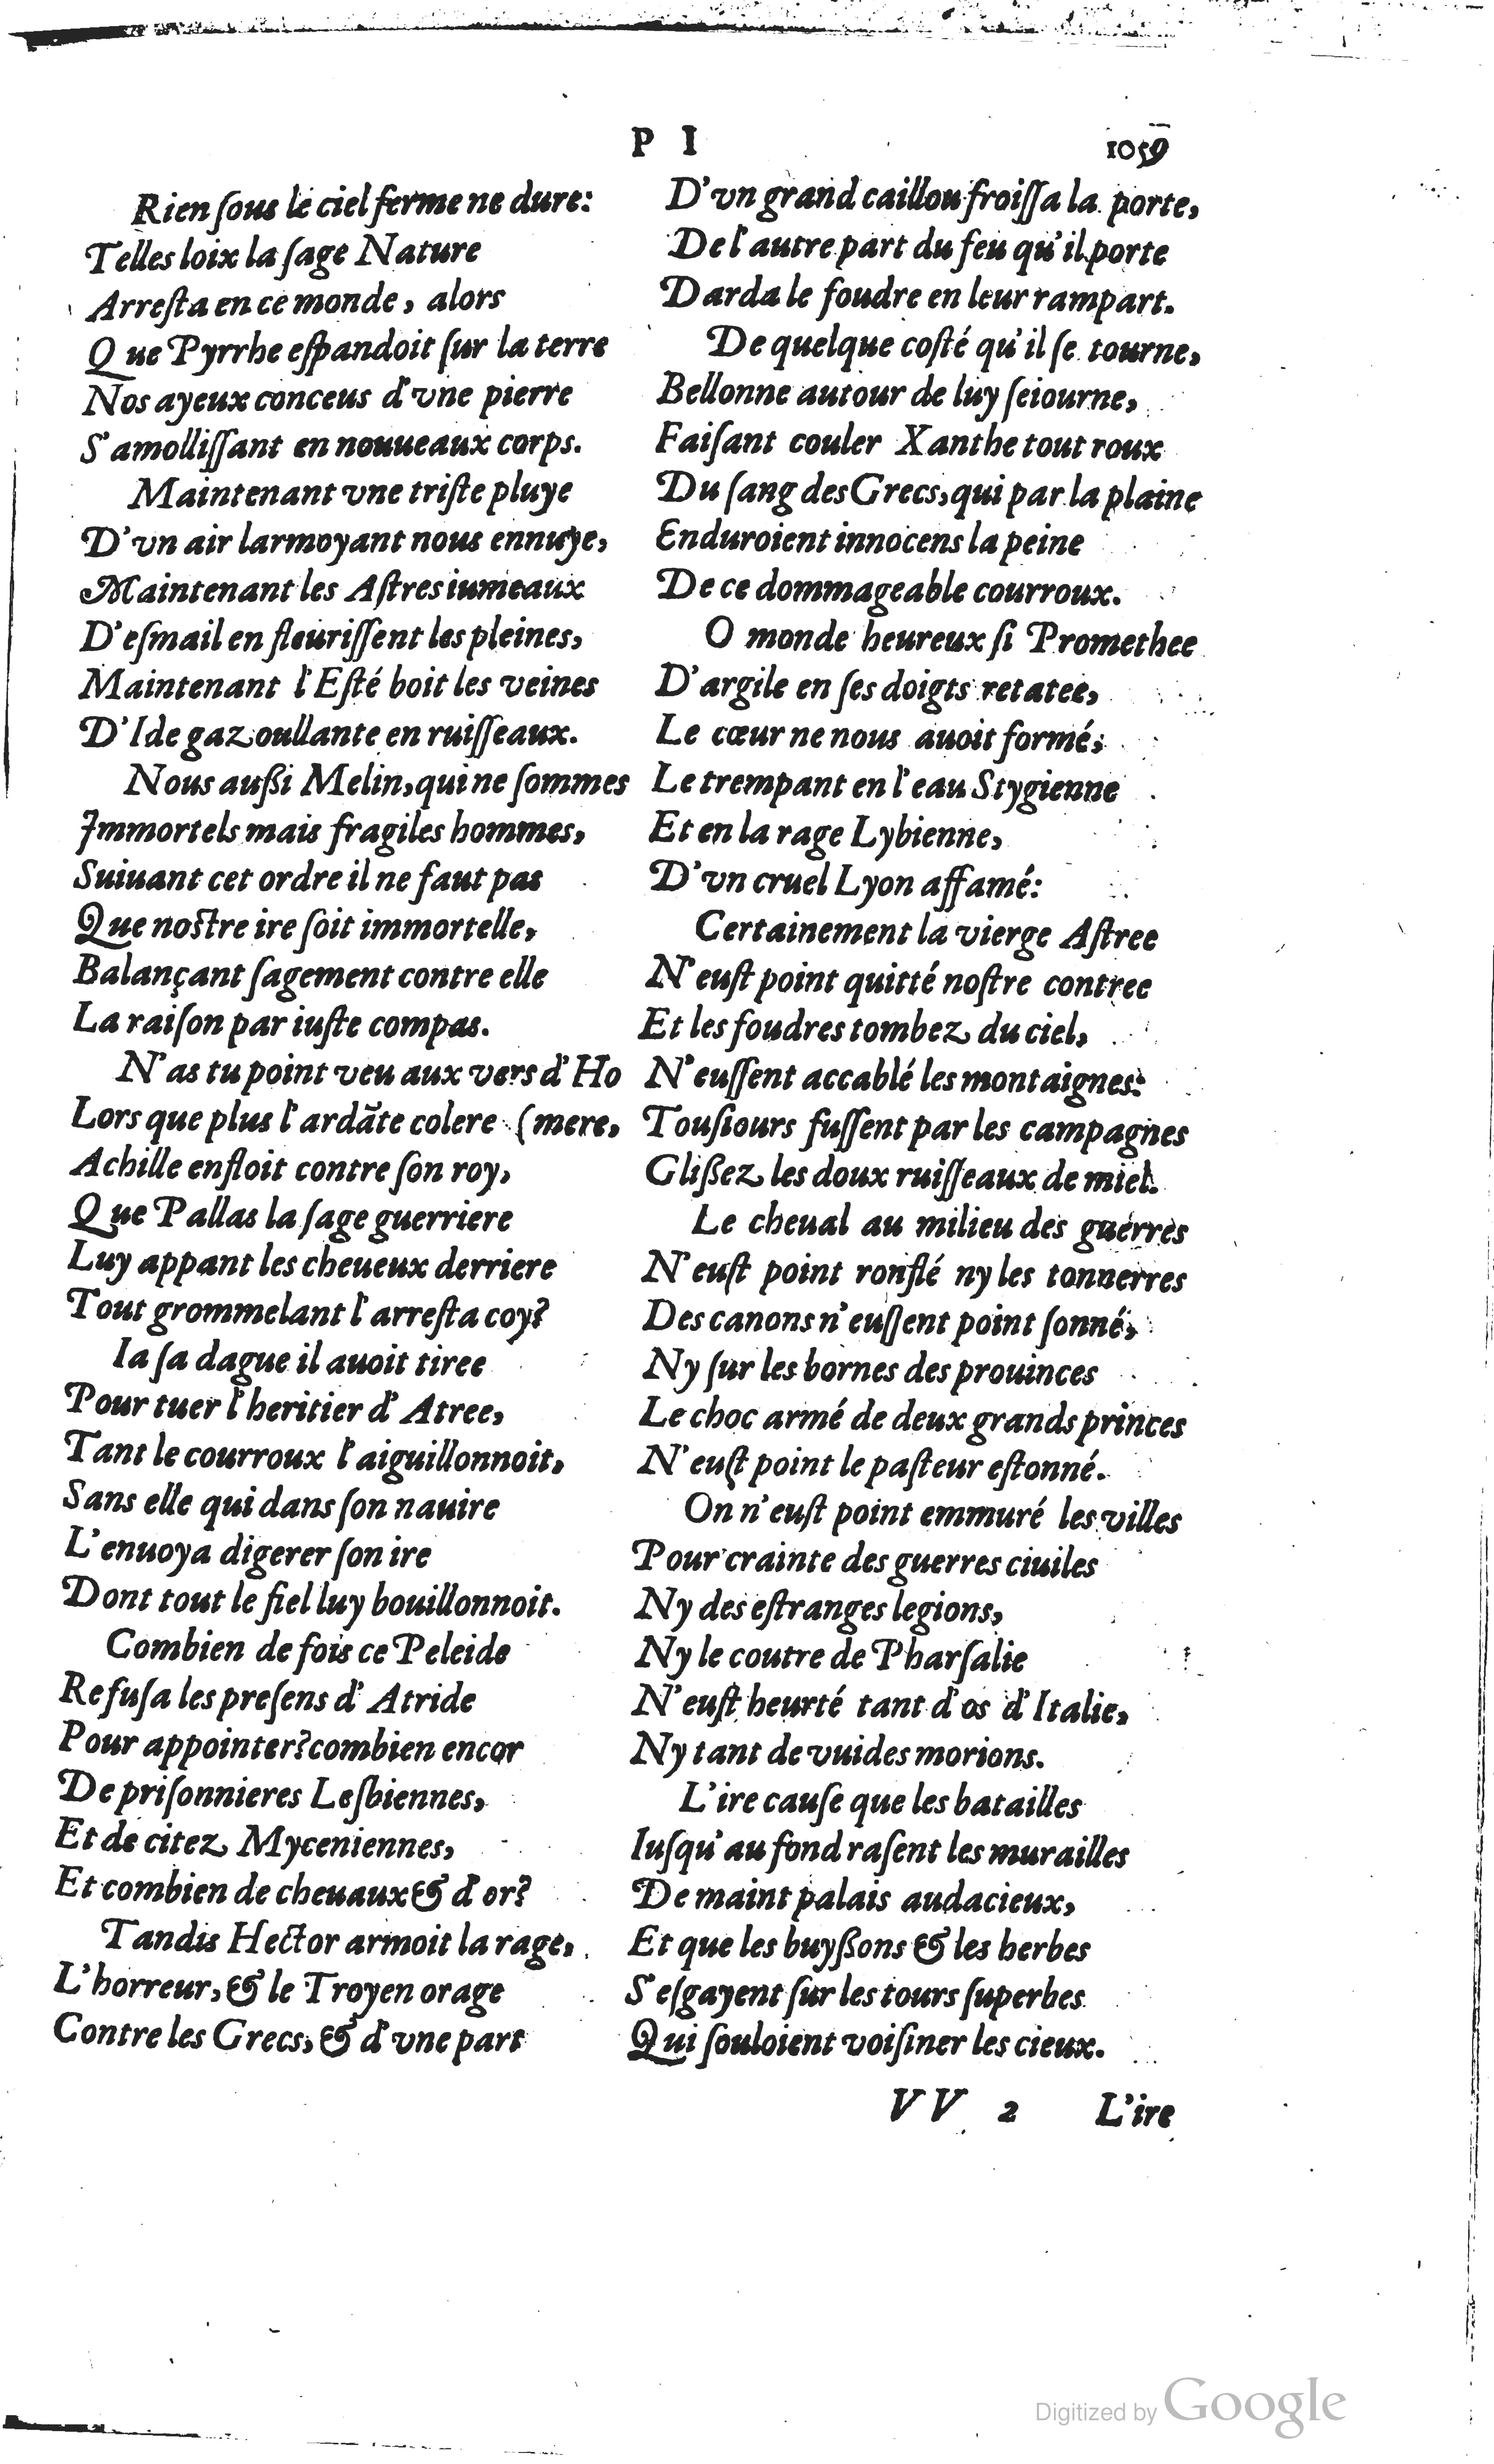 P I
1059
Rien ſous le ciel ferme ne dure:
Telles loix la ſage Nature
Arreſta en ce monde, alors
Que Pyrrhe eſpandoit ſur la terre
Nos ayeux conceus d'vne pierre
S'amolliſſant en nouueaux corps.
Maintenant vne triſte pluye
D'vn air larmoyant nous ennuye,
Maintenant les Aſtres iumeaux
D'eſmail en fleuriſſent les pleines,
Maintenant l'Eſté boit les veines
D'Ide gazoullante en ruiſſeaux.
Nous außi Melin, qui ne ſommes
Immortels mais fragiles hommes,
Suiuant cet ordre il ne faut pas
Que noſtre ire ſoit immortelle,
Balançant ſagement contre elle
La raiſon par iuſte compas.
N'as tu point veu aux vers d'Ho
Lors que plus l'ardãte colere (mere,
Achille enfloit contre ſon roy,
Que Pallas la ſage guerriere
Luy appant les cheueux derriere
Tout grommelant l'arreſta coy?
Ia ſa dague il auoit tiree
Pour tuer l'heritier d'Atree,
Tant le courroux l'aiguillonnoit,
Sans elle qui dans ſon nauire
L'enuoya digerer ſon ire
Dont tout le fiel luy bouillonnoit.
Combien de fois ce Peleide
Refuſa les preſens d'Atride
Pour appointer? combien encor
De priſonnieres Leſbiennes,
Et de citez Myceniennes,
Et combien de cheuaux & d'or?
Tandis Hector armoit la rage,
L'horreur, & le Troyen orage
Contre les Grecs, & d'vne part
D'vn grand caillou froiſſa la porte,
De l'autre part du feu qu'il porte
Darda le foudre en leur rampart.
De quelque coſté qu'il ſe tourne,
Bellonne autour de luy ſeiourne,
Faiſant couler Xanthe tout roux
Du ſang des Grecs, qui par la plaine
Enduroient innocens la peine
De ce dommageable courroux.
O monde heureux ſi Promethee
D'argile en ſes doigts retatee,
Le cœur ne nous auoit formé,
Le trempant en l'eau Stygienne
Et en la rage Lybienne,
D'vn cruel Lyon affamé:
Certainement la vierge Aſtree
N'euſt point quitté noſtre contree
Et les foudres tombez du ciel,
N'euſſent accablé les montaignes:
Touſiours fuſſent par les campagnes
Glißez les doux ruiſſeaux de miel.
Le cheual au milieu des guerres
N'euſt point ronflé ny les tonnerres
Des canons n'euſſent point ſonné,
Ny ſur les bornes des prouinces
Le choc armé de deux grands princes
N'euſt point le paſteur eſtonné.
On n'euſt point emmuré les villes
Pour crainte des guerres ciuiles
Ny des eſtranges legions,
Ny le coutre de Pharſalie
N'euſt heurté tant d'os d'Italie,
Ny tant de vuides morions.
L'ire cauſe que les batailles
Iuſqu'au fond raſent les murailles
De maint palais audacieux,
Et que les buyßons & les herbes
S'eſgayent ſur les tours ſuperbes
Qui ſouloient voiſiner les cieux.
VV 2 L'ire
Digitized by Google